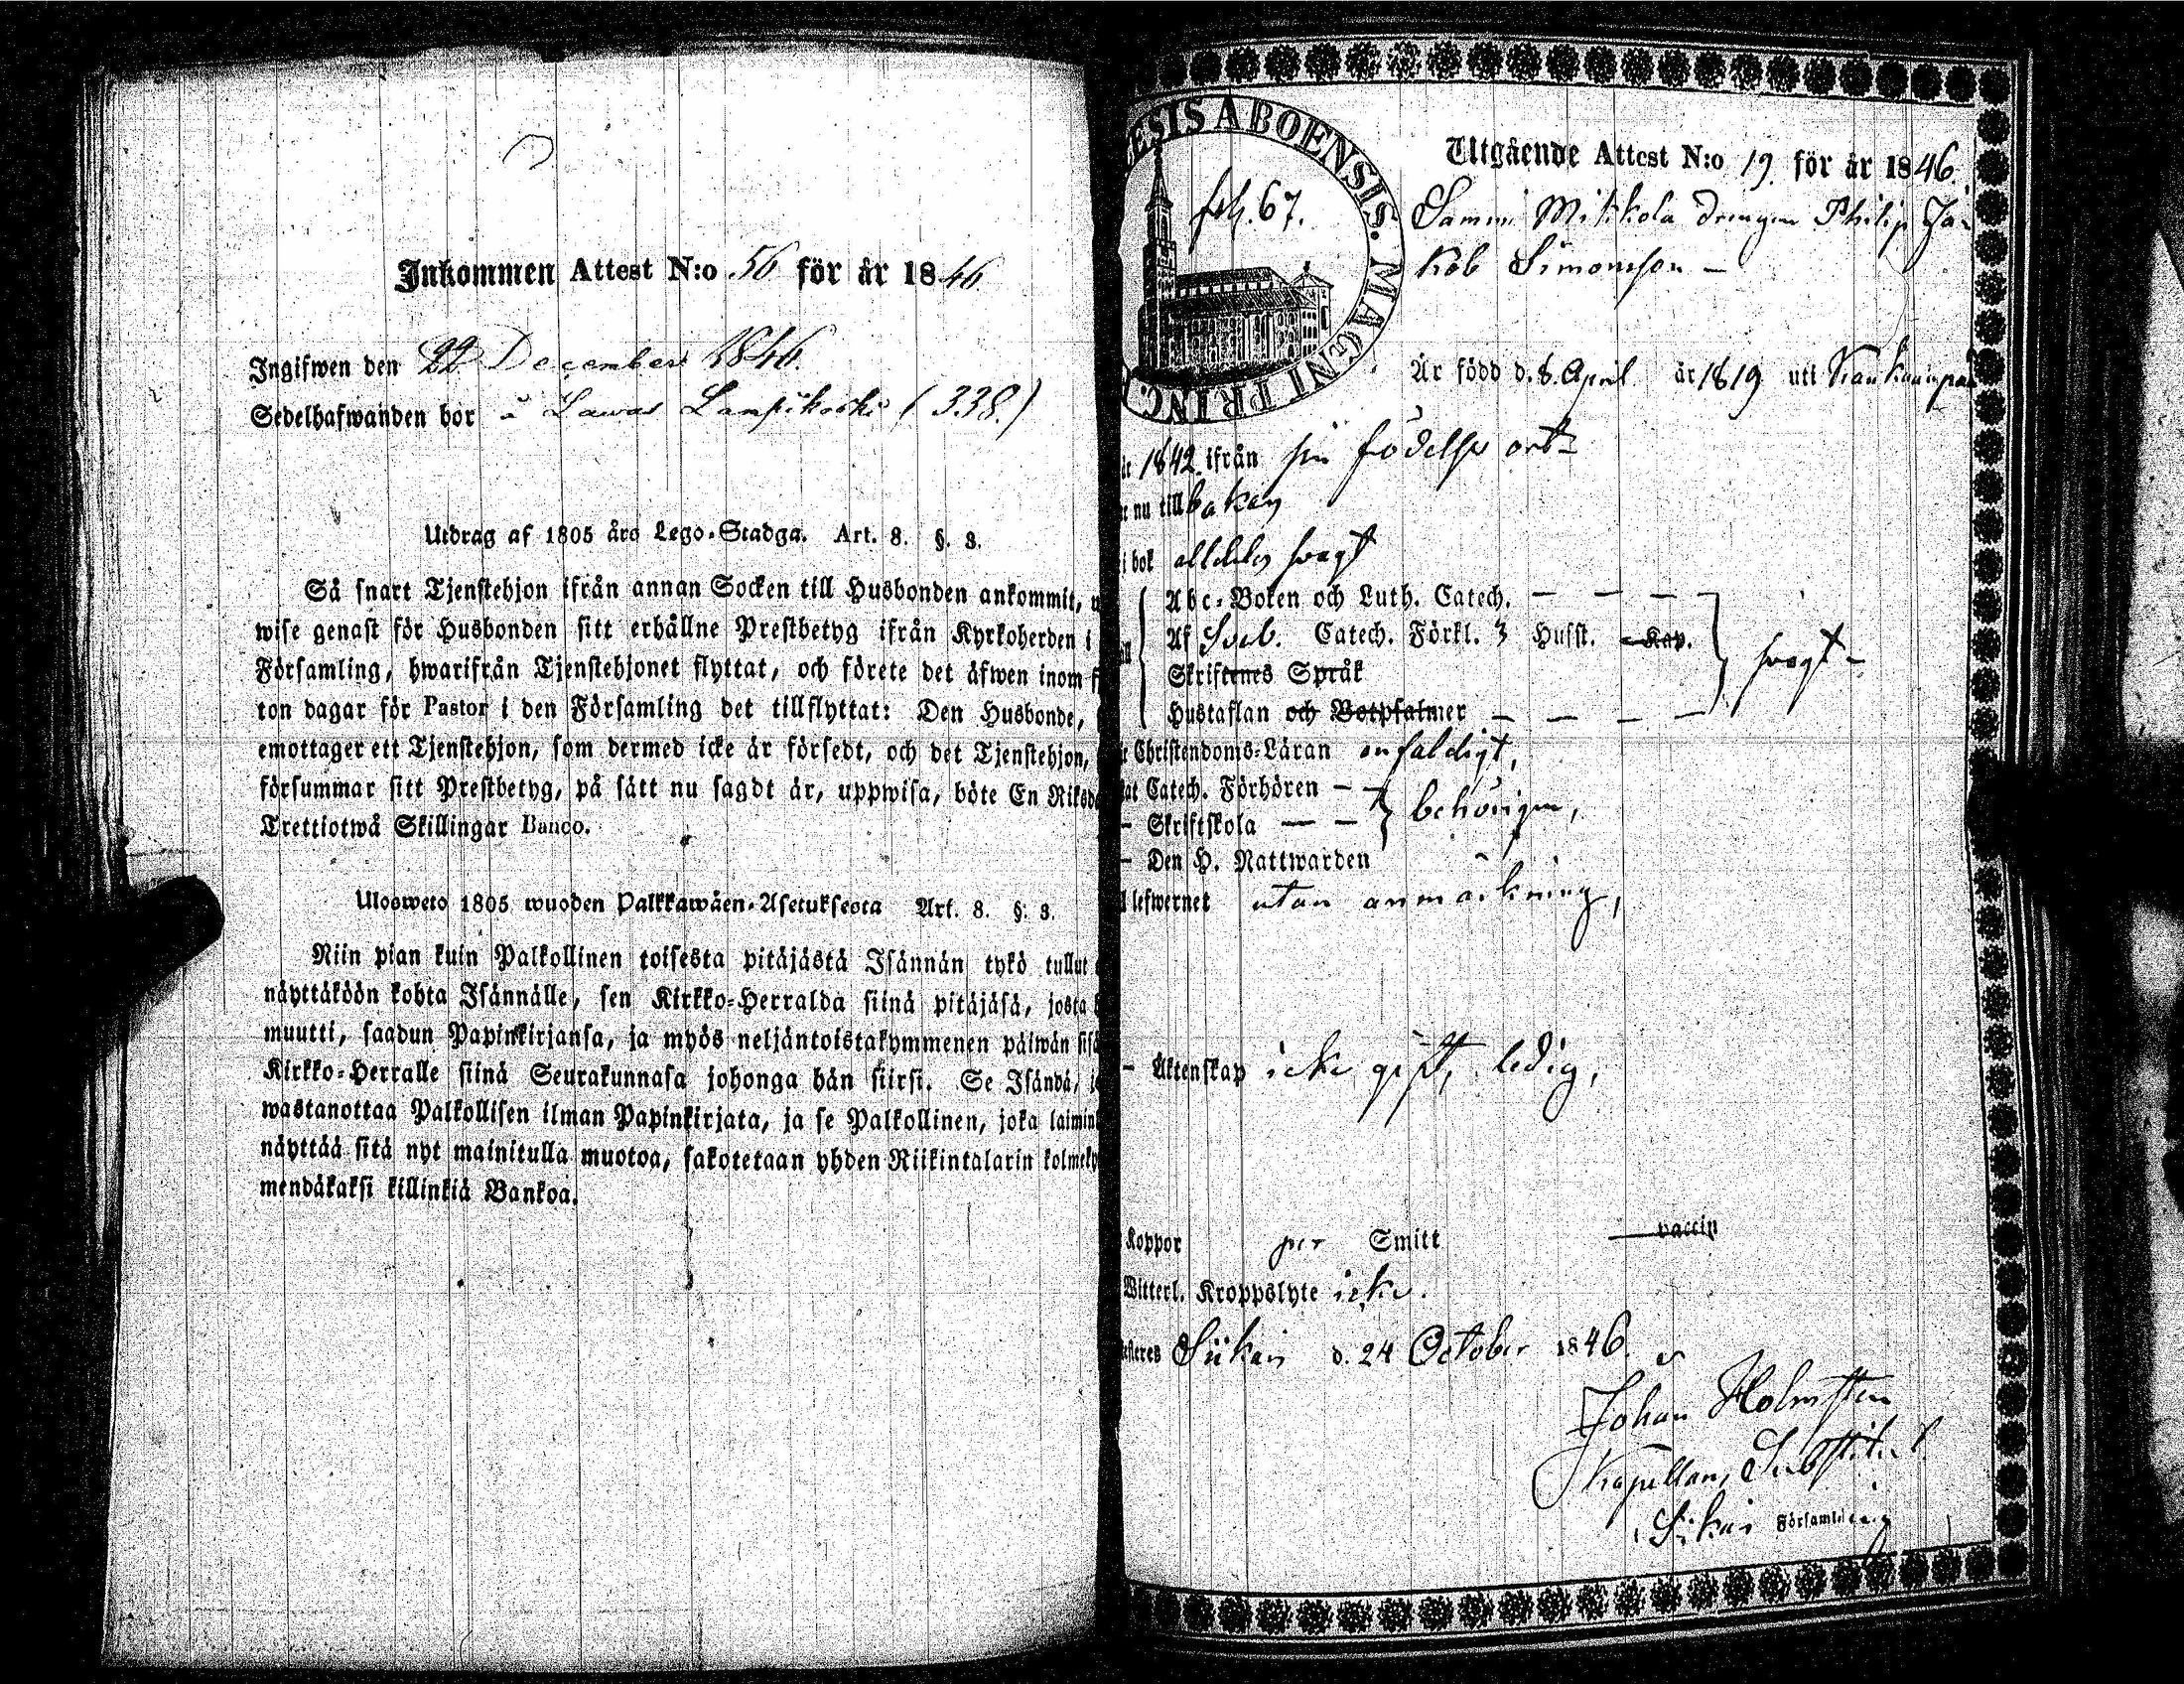 Inkommen Attest N:o 56 för år 1846
Ingifwen den 22 December 1846.
Sedelhafwanden bor i Lawas Lampikoski (338.)
Utdrag af 1805 års Lego-Stadga. Art. 8. §. 3.
Så snart Tjenstehjon ifrån annan Socken till Husbonden ankommit, u
wise genast för Husbonden sitt erhållne Prestbetyg ifrån Kyrkoherden i
Församling, hwarifrån Tjenstehjonet flyttat, och förete det äfwen inom f
ton dagar för Pastor i den Församling det tillflyttat: Den Husbonde,
emottager ett Tjenstehjon, som dermed icke är försedt, och det Tjenstehjon,
försummar sitt Prestbetyg, på sätt nu sagdt är, uppwisa, böte En Riksd
Trettiotwå Skillingar Banco.
Ulosweto 1805 wuoden Palkkawäen-Asetuksesta Art. 8. §. 3.
Niin pian kuin Palkollinen toisesta pitäjästä Isännän tykö tullut
näyttäköön kohta Isännälle, sen Kirkko-Herralda siinä pitäjäsä, josta
muutti, saadun Papinkirjansa, ja myös neljäntoistakymmenen päiwän sisä
Kirkko-Herralle siinä Seurakunnasa johonga hän siirsi. Se Isändä, jo
wastanottaa Palkollisen ilman Papinkirjata, ja se Palkollinen, joka laimin
näyttää sitä nyt mainitulla muotoa, sakotetaan yhden Riikintalarin kolmeky
mendäkaksi killinkiä Bankoa.
ESIS ABOENSIS. MAGNI PRINC.
fol. 67.
Utgående Attest N:o 19 för år 1846.
Sammi Mikkola Drengen Philip Ja-
kob Simonsson -
Är född d. 8. April år 1819 uti Kankaanpää
1842 ifrån sin födelse ort
nu tillbakas
i bok alldeles svagt
Abc-Boken och Luth. Catech. — — — —
Af Sveb. Catech. Förkl. 3 Husst. Kap.
Skriftenes Språk
svagt -
Hustaflan och Botpsalmer — — — —
Christendoms-Läran enfaldigt,
at Catech. Förhören — —
— Skriftskola — —
behörigen,
— Den H. Nattwarden
lefwernet utan anmärkning,
— Äktenskap icke gift, ledig,
Koppor per Smitt vaccin
Witterl. Kroppslyte icke.
Siikais d. 24 October 1846.
Johan Holmsten
Kapellans Substitut
Siikais Församling